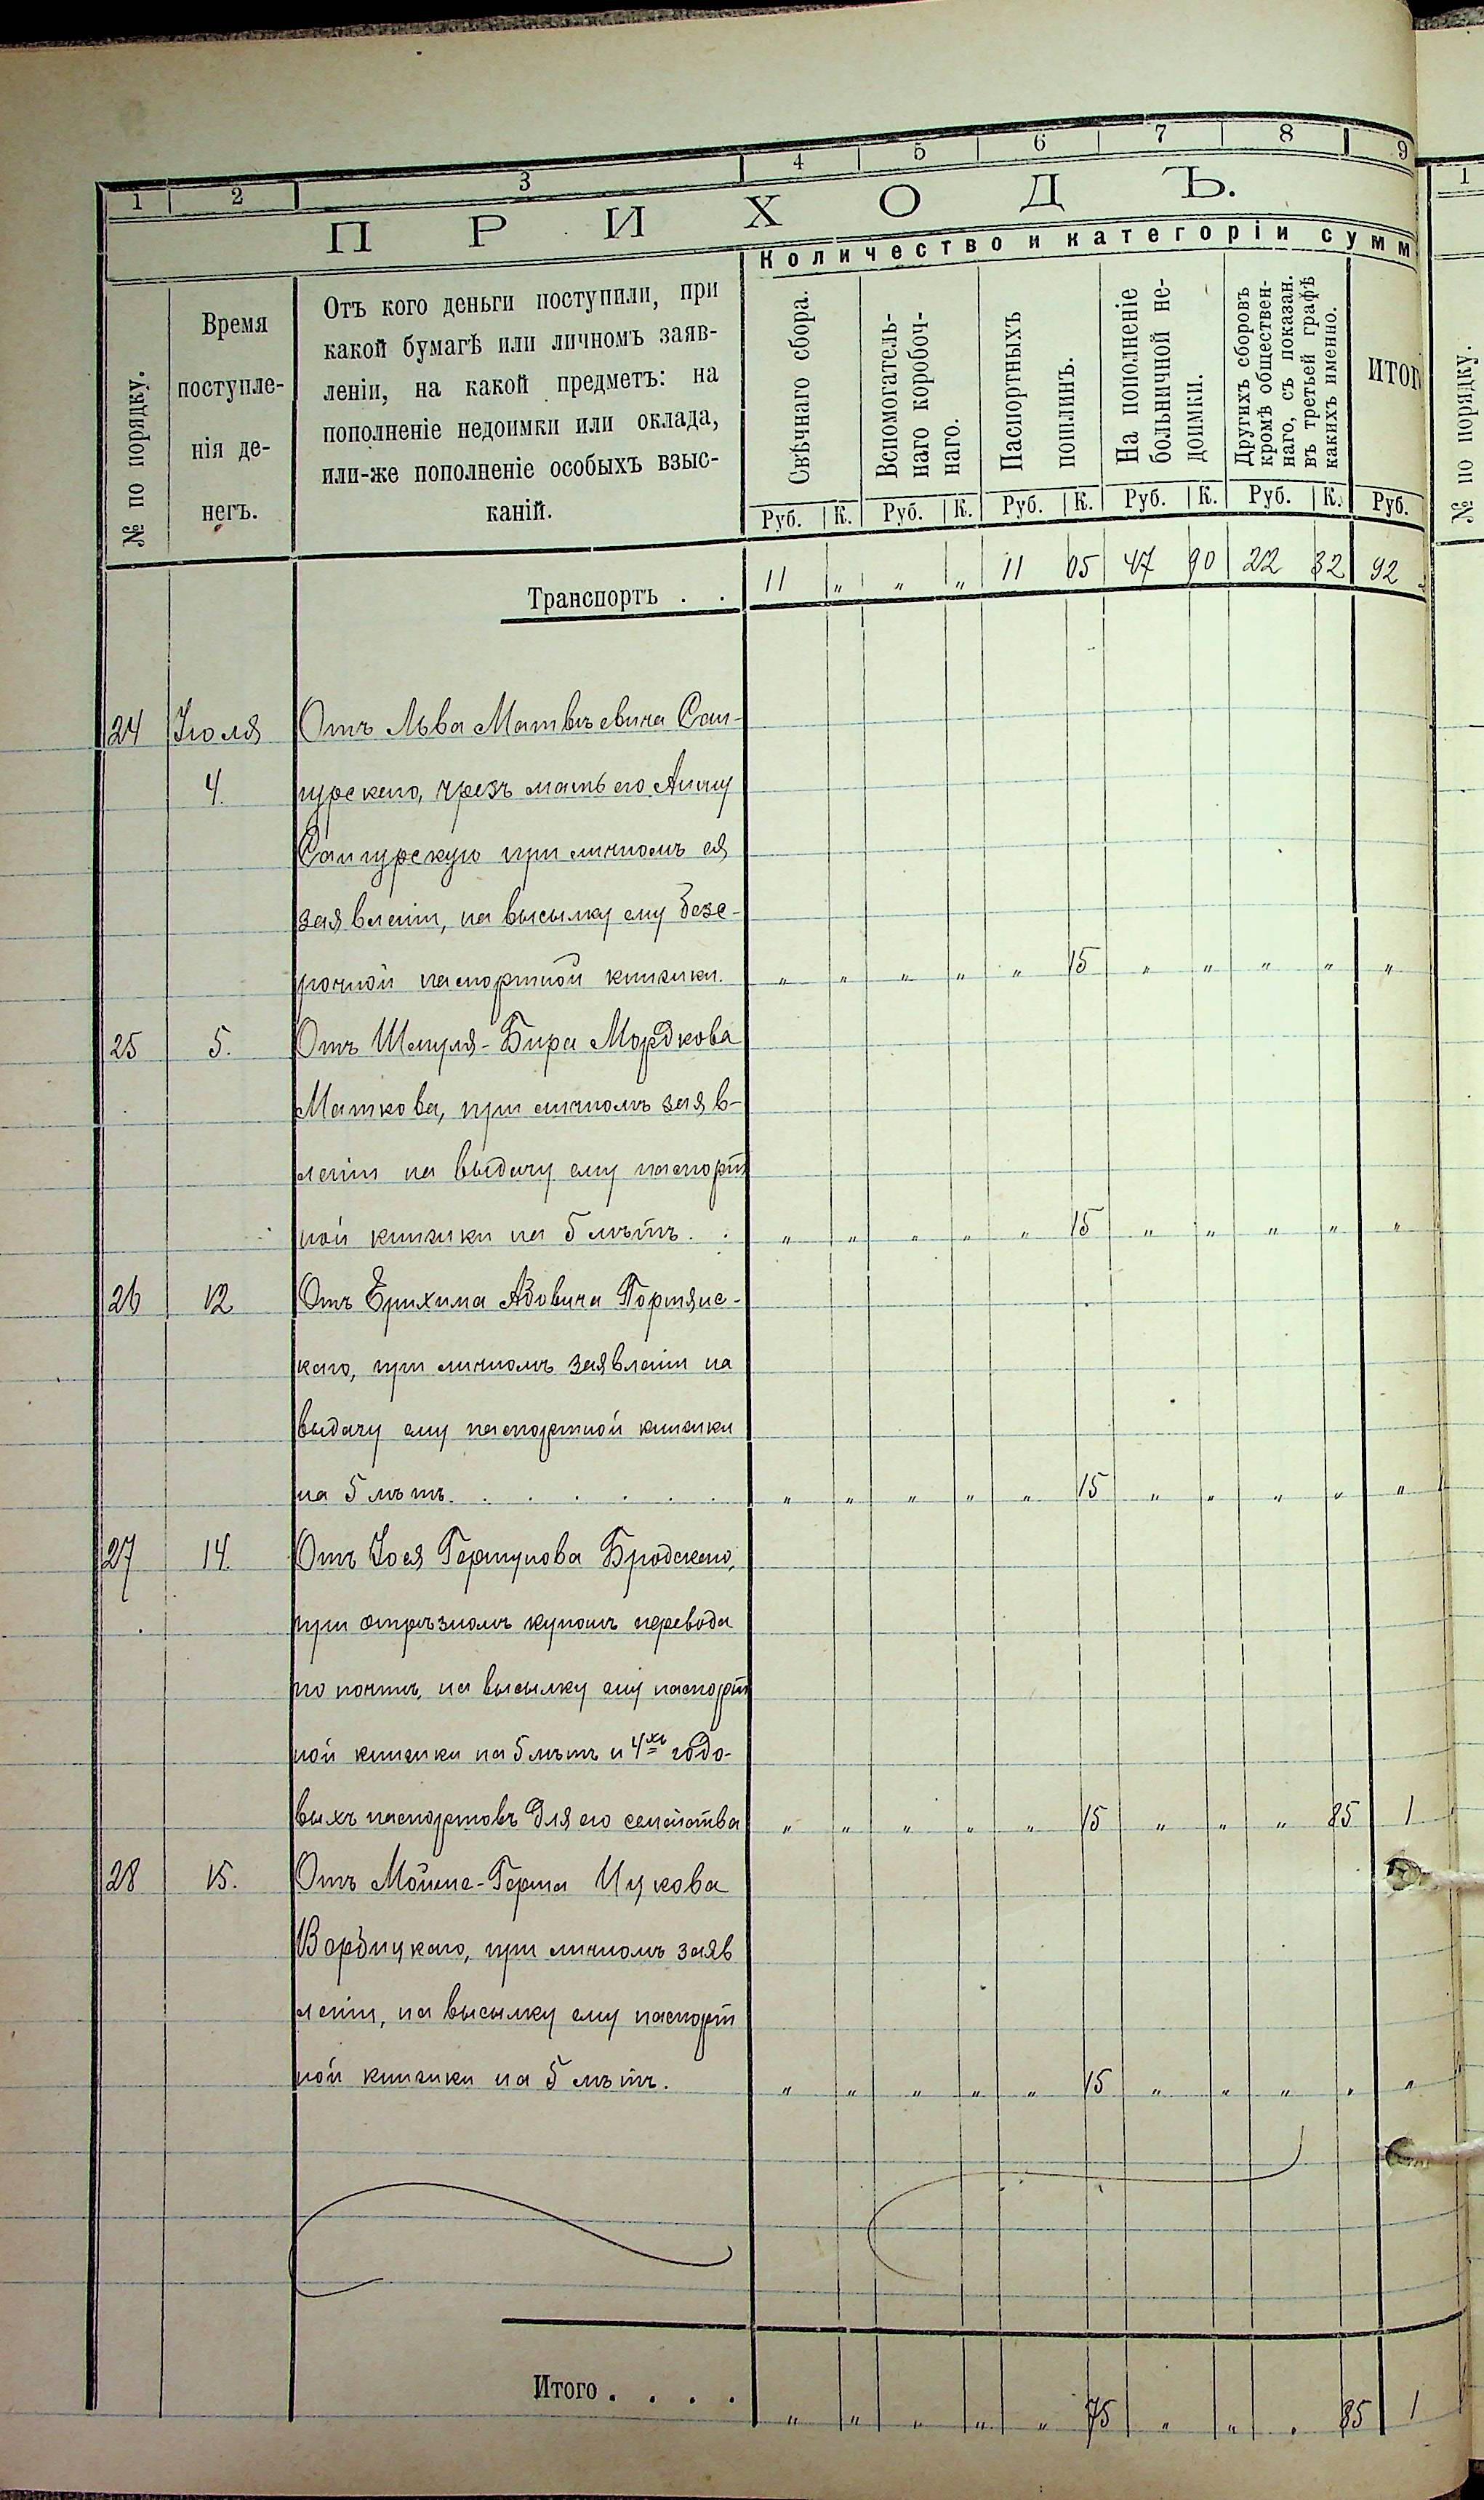 1 2 3 4 5 6 7 8 9
ПРИХОДЪ.
Количество и категоріи сумм
№ по порядку.
Время
поступле-
нія де-
негъ.
Отъ кого деньги поступили, при
какой бумагѣ или личномъ заяв-
леніи, на какой предметъ: на
пополненіе недоимки или оклада,
или-же пополненіе особыхъ взыс-
каній.
Свѣчнаго сбора.
Вспомогатель-
наго коробоч-
наго.
Паспортныхъ
пошлинъ.
На пополненіе
больничной не-
доимки.
Другихъ сборовъ
кромѣ обществен-
наго, съ показан.
въ третьей графѣ
какихъ именно.
ИТОГ
Руб. К. Руб. К. Руб. К. Руб. К. Руб. К. Руб.
Транспортъ . . 11 „ „ „ 11 05 47 90 22 32 92
24 Іюля Отъ Льва Матвѣевича Сан-
4. гурскаго, чрезъ мать его Анну
Сангурскую при личномъ ея
заявленіи, на высылку ему безс-
рочной паспортной книжки. „ „ „ „ „ 15 „ „ „ „ „
25 5. Отъ Шмуля-Бира Мордкова
Маткова, при личномъ заяв-
леніи на выдачу ему паспорт
ной книжки на 5 лѣтъ. . „ „ „ „ „ 15 „ „ „ „ „
26 12 Отъ Ерихима Абовича Портянс-
каго, при личномъ заявленіи на
выдачу ему паспортной книжки
на 5 лѣтъ. . . . . . „ „ „ „ „ 15 „ „ „ „ „
27 14. Отъ Іося Гершунова Бродскаго,
при отрѣзномъ купонѣ перевода
по почтѣ, на высылку ему паспорт
ной книжки на 5 лѣтъ и 4хъ годо-
выхъ паспортовъ для его семейства „ „ „ „ „ 15 „ „ „ 85 1
28 15. Отъ Мойше-Герша Ицкова
Вербицкаго, при личномъ заяв
леніи, на высылку ему паспорт
ной книжки на 5 лѣтъ. „ „ „ „ „ 15 „ „ „ „ „
Итого . . . . „ „ „ „ „ 75 „ „ „ 85 1
1
№ по порядку.